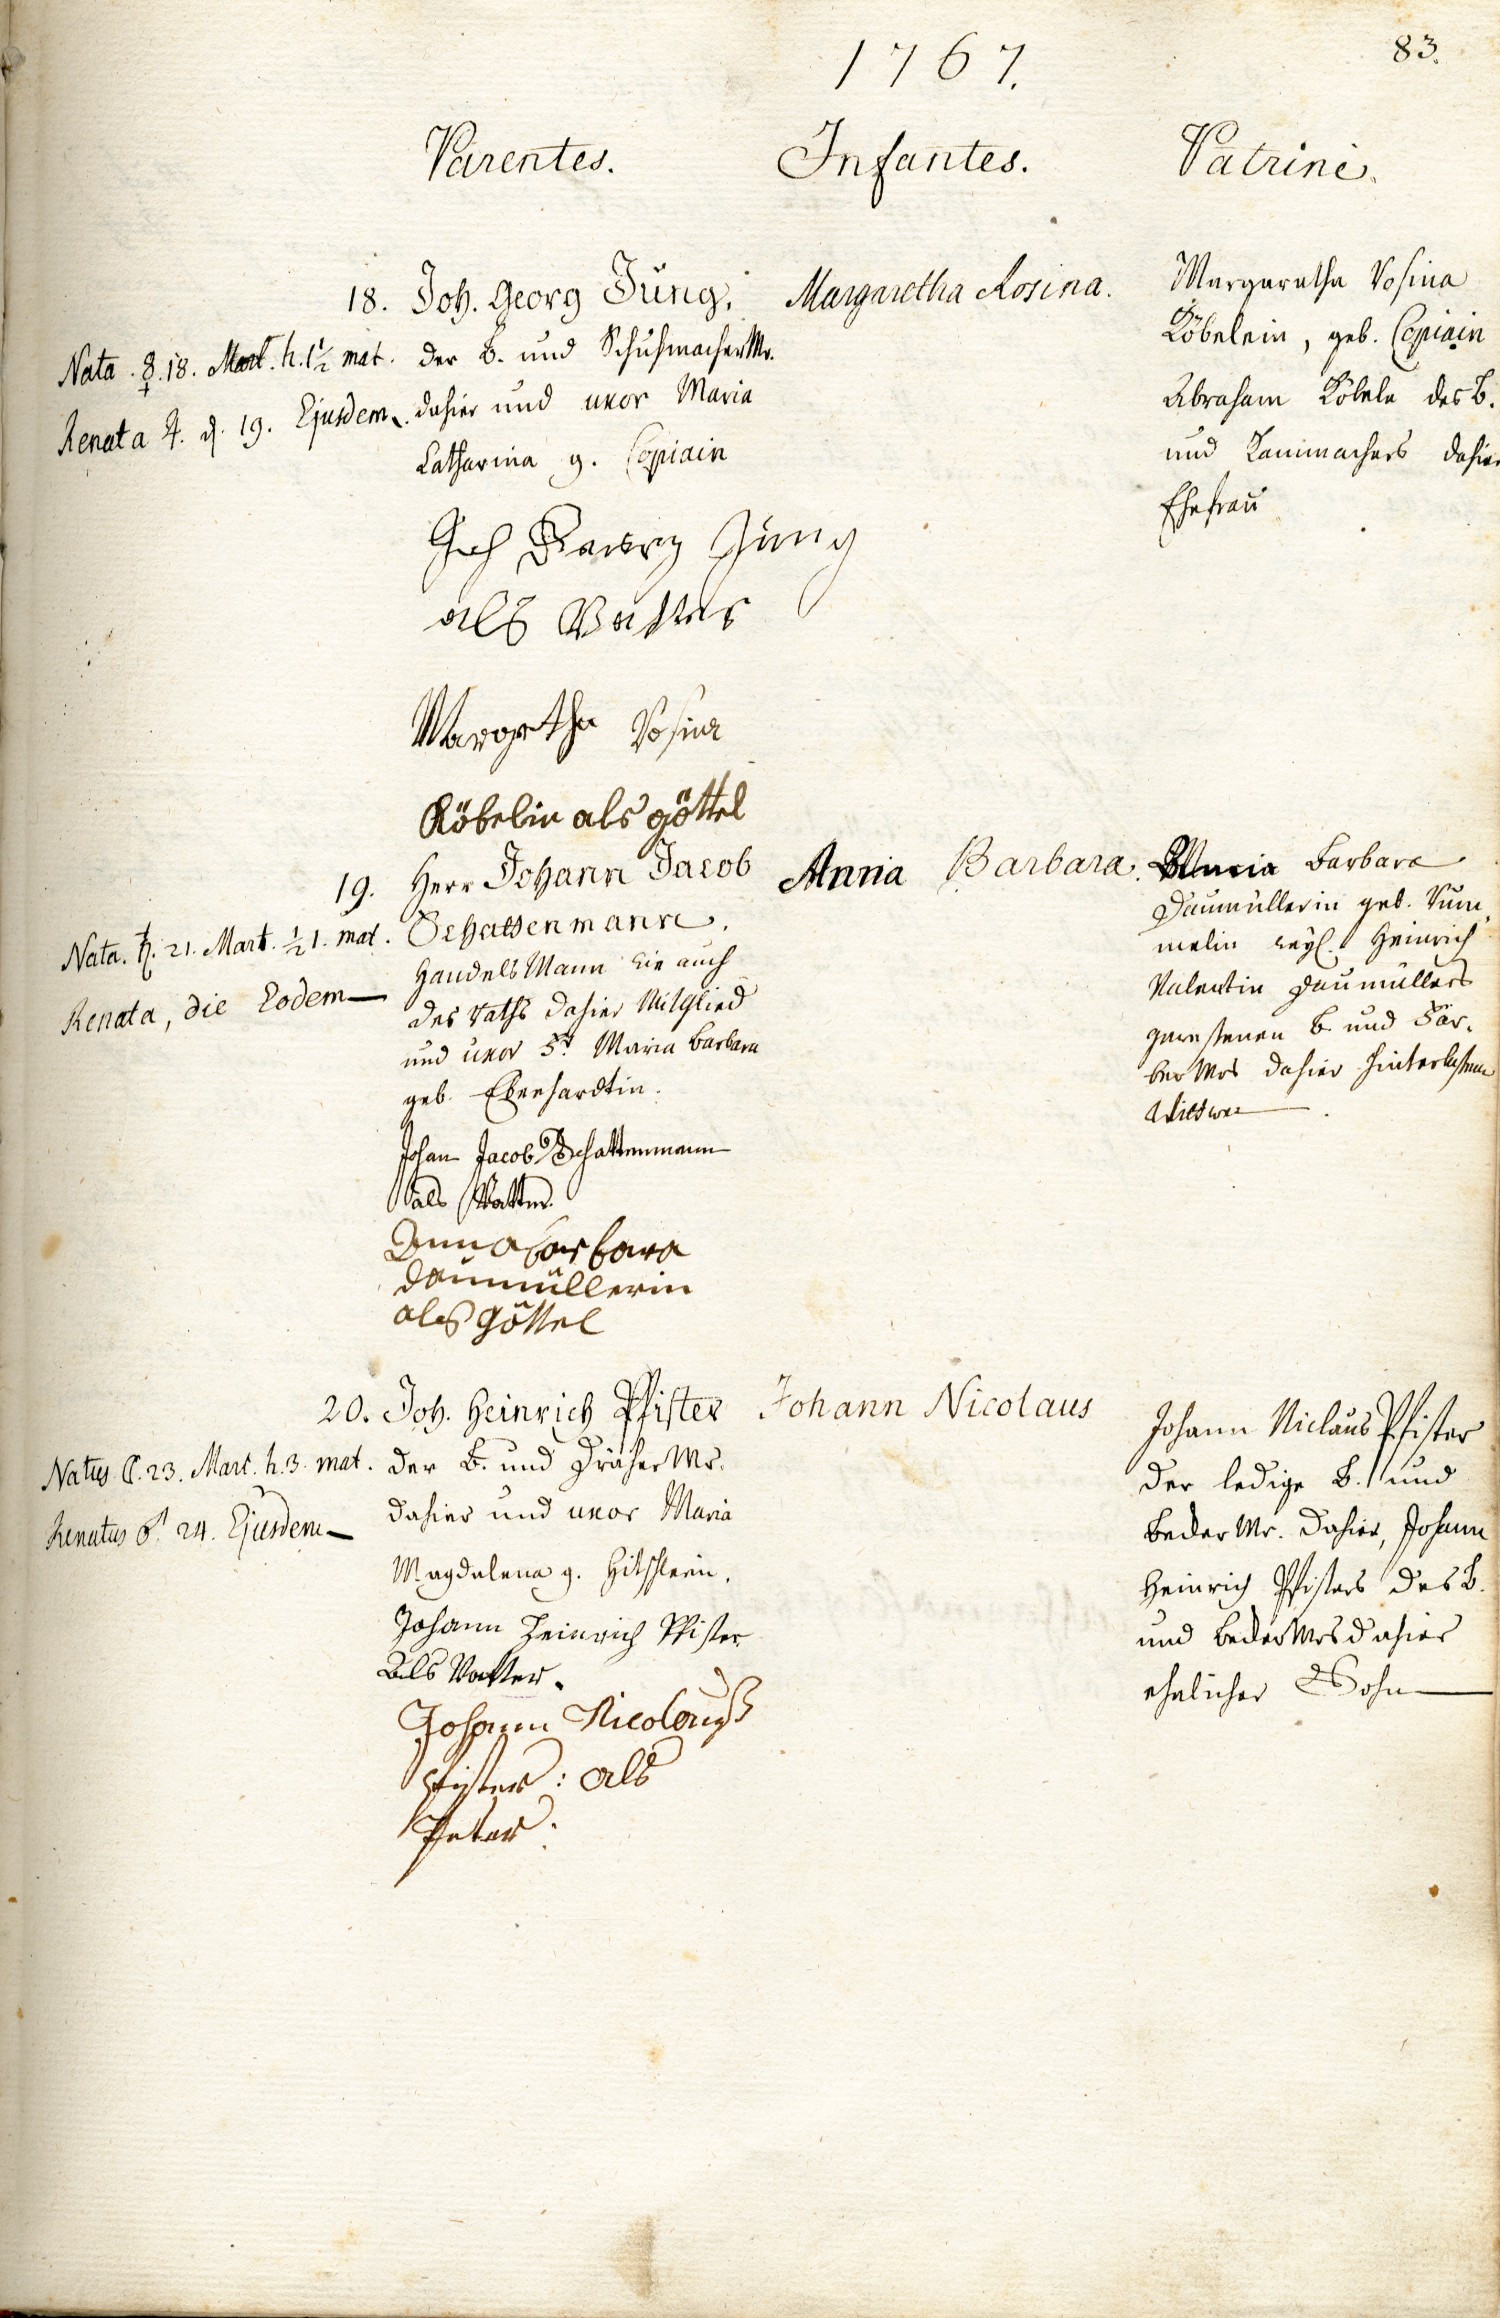 1767.
83.
Parentes.
Infantes.
Patrini.
18.
Nata ☿. 18. Mart. h. 1½ mat.
Renata ♃. d. 19. Ejusdem.
Joh. Georg Jung,
der B. und Schuhmacher Mr.
dahier und uxor Maria
Catharina g. Copiain
Ich Georg Jung
als Vatter
Margretha Rosina
Köbelin als göttel
Margaretha Rosina.
Margaretha Rosina
Köbelein, geb. Copiain
Abraham Köbele des B.
und Kammachers dahier
Ehefrau
19.
Nata. ♄. 21. Mart. ½1. mat.
Renata, die Eodem
Herr Johann Jacob
Schattenmann,
Handels Mann wie auch
des Raths dahier Mitglied
und uxor Fr. Maria Barbara
geb. Eberhardtin.
Johan Jacob Schattenmann
als Vatter.
Anna barbara
daumüllerin
als Göttel
Anna Barbara.
Anna Barbara
Daumüllerin geb. Rum,
melin weyl. Heinrich
Valentin Daumüllers
gewesenen B. und Fär,
ber Mrs dahier hinterlassene
Wittwe
20.
Natus ☾. 23. Mart. h. 3. mat.
Renatus ♂. 24. Ejusdem
Joh. Heinrich Pfister
der B. und Dräher Mr.
dahier und uxor Maria
Magdalena g.
Johann Heinrich Pfister
Als Vatter.
Johann Nicolauß
Pfister: als
Peter:
Johann Nicolaus
Johann Niclaus Pfister
der ledige B. und
Beder Mr. dahier, Johann
Heinrich Pfisters des B.
und Beder Mrs dahier
ehelicher Sohn